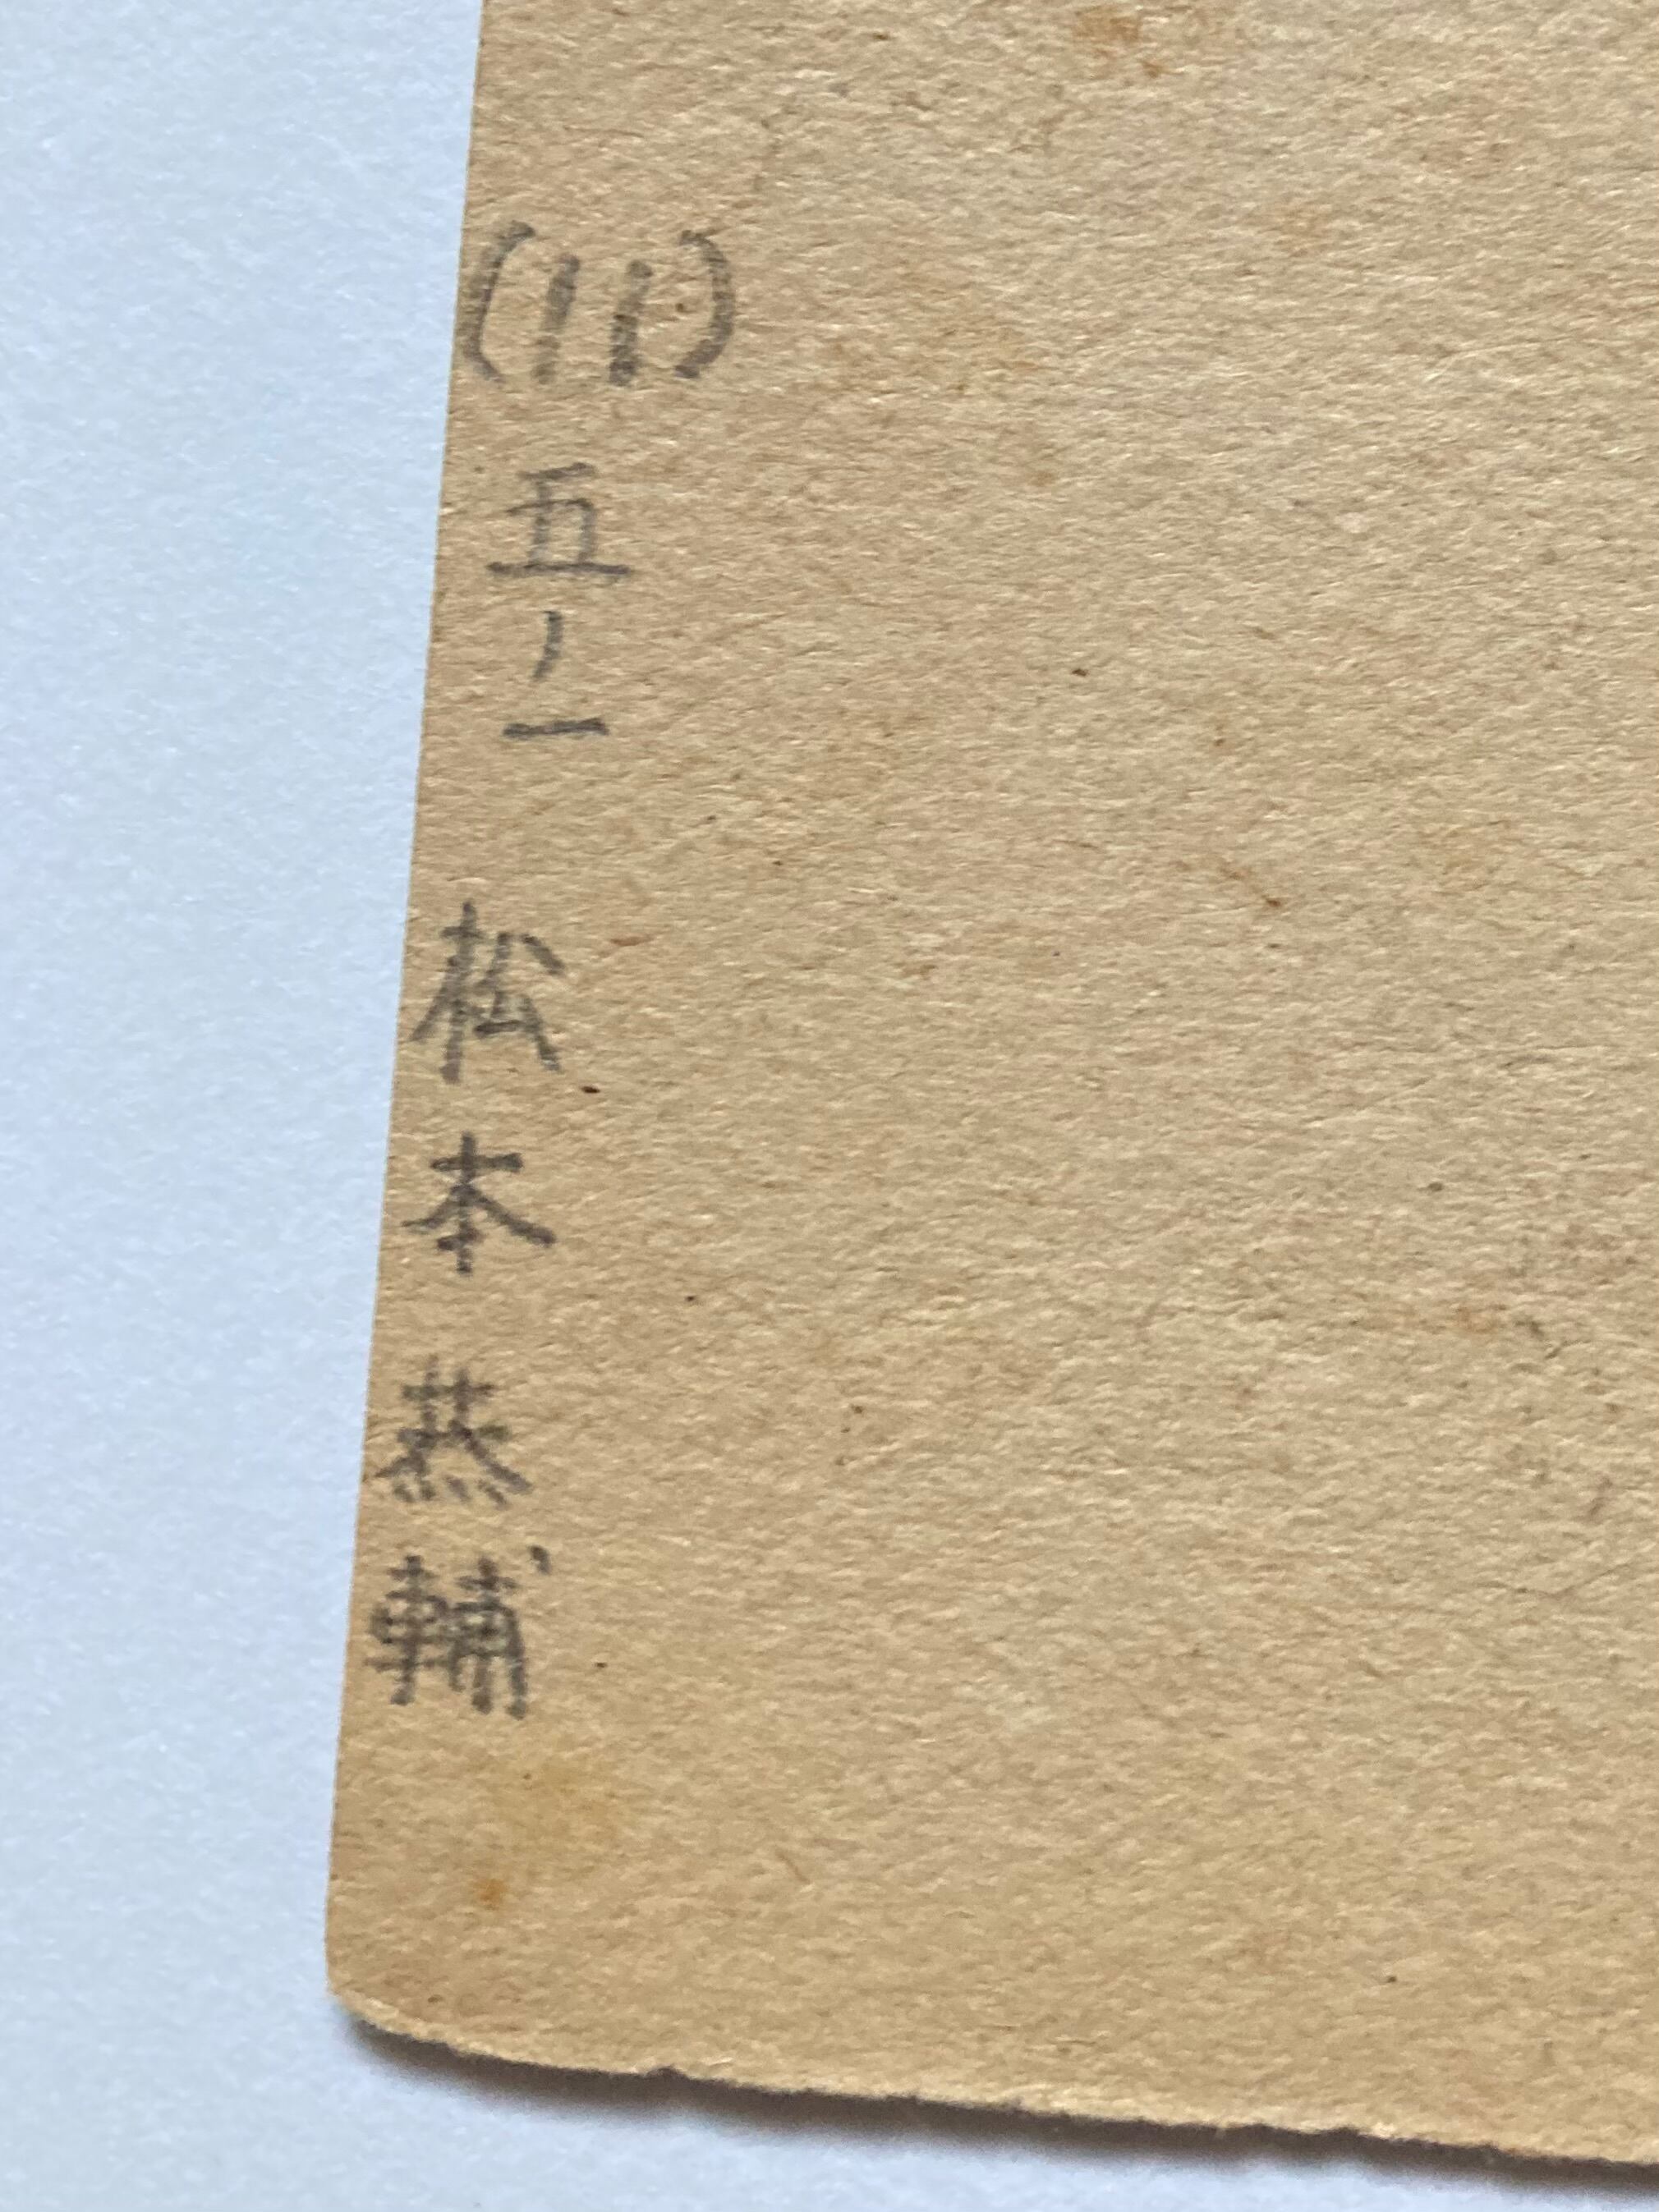 (11) 五ノ一 松本蒸輔